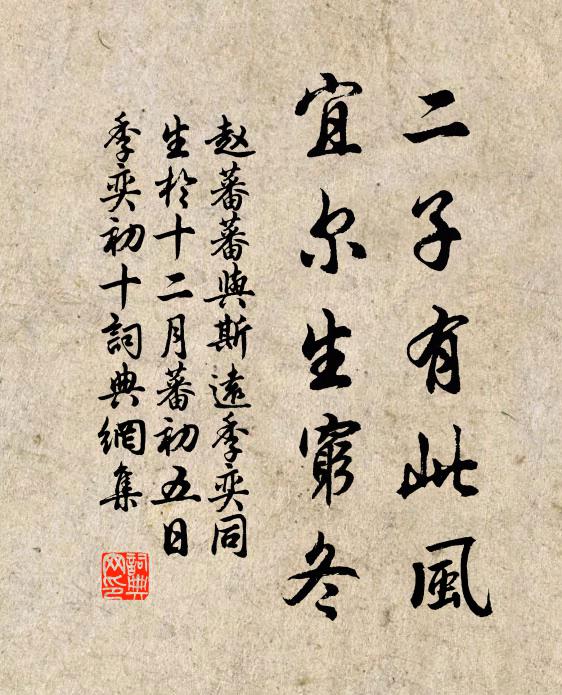 二子有此風
宜尔生窮冬
赵蕃蕃與斯遠季奕同
生於十二月蕃初五日
季奕初十詞典網集
詞典網印